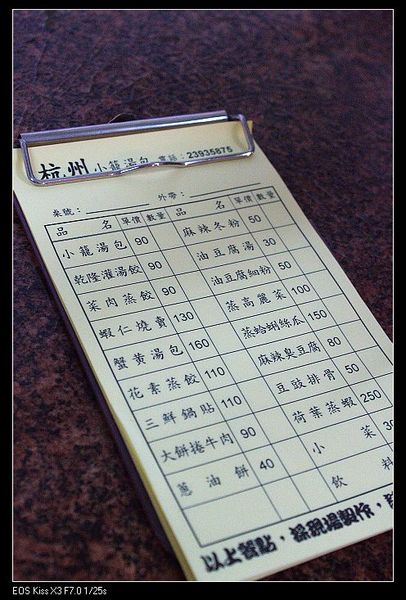 杭州 小籠湯包 電話：23935875
桌號： 外帶：
品 名 單價 數量 品 名 單價 數量
小籠湯包 90 麻辣冬粉 50
乾隆灌湯餃 90 油豆腐湯 30
菜肉蒸餃 90 油豆腐細粉 50
蝦仁燒賣 130 蒸高麗菜 100
蟹黃湯包 160 蒸蛤蜊絲瓜 150
花素蒸餃 110 麻辣臭豆腐 80
三鮮鍋貼 110 豆豉排骨 50
大餅捲牛肉 90 荷葉蒸蝦 250
蔥油餅 40 小 菜 30
飲 料
以上餐點，採現場製作，
EOS Kiss X3 F7.0 1/25s